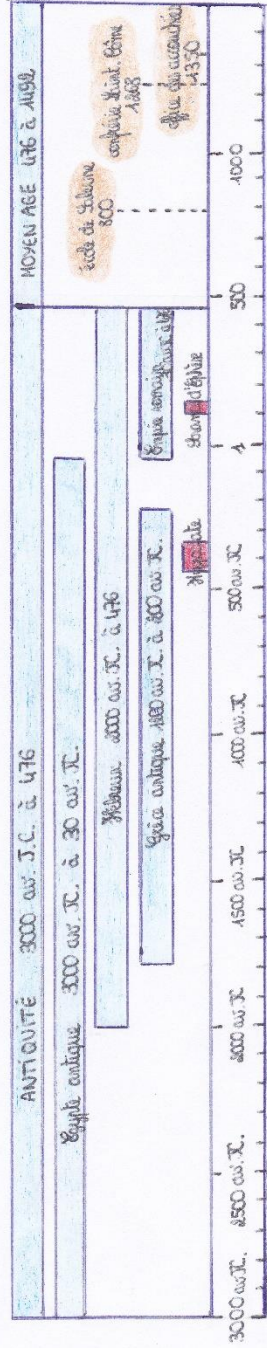 ANTIQUITÉ 3000 av. J.C. à 476
MOYEN AGE 476 à 1492
Egypte antique 3000 av. JC. à 30 av. JC.
Hébreux 2000 av. JC. à 476
Grèce antique 1800 av. JC. à 200 av. JC.
Empire romain
Hippocrate
Soranos d'Ephèse
école de Salerne
800
confrérie Saint-Côme
1268
office des accouchées
1350
3000 av JC.
2500 av. JC.
2000 av. JC
1500 av. JC
1000 av. JC
500 av. JC
1
500
1000